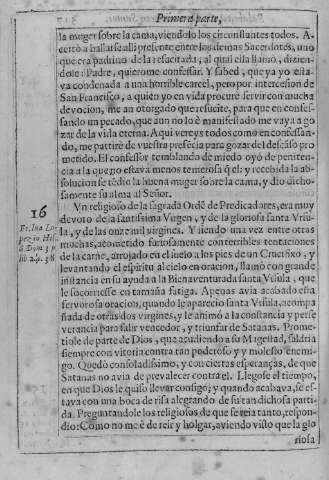 Primera parte,
la muger sobre la cama, viendolo los circunstantes todos. A-
certò a hallarse alli presente entre los demas Sacerdotes, uno
que era padrino de la resucitada, al qual ella llamò, dizien-
dole: Padre, quierome confessar. Y sabed, que ya yo esta-
va condenada a una horrible carcel, pero por intercesion de
San Francisco, a quien yo en vida procurè servir con mucha
devocion, me an otorgado que resucite, para que en confes-
sando un pecado, que aun no lo è manifestado me vaya a go
zar de la vida eterna. Aqui vereys todos como en confessan-
do, me partirè de vuestra presēcia para gozar del descāso pro
metido. El confessor temblando de miedo oyó de peniten-
cia a la que no estava menos temerosa q̄ el: y recebida la ab-
solucion se tēdio la buena muger sobre la cama, y dio dicho-
samente su alma al Señor.
16
Un religioso de la sagrada Ordē de Predicadores, era muy
devoto de la santissima Virgen, y de la gloriosa santa Ursu
la, y de las onze mil virgines. Y siendo una vez entre otras
muchas, acometido furiosamente con terribles tentaciones
de la carne, arrojado en el suelo a los pies de un Crucifixo, y
levantando el espiritu al cielo en oracion, llamò con grande
instancia en su ayuda a la Bienaventurada santa Ursula, que
le socorriesse en tamaña fatiga. Apenas avia acabado esta
fervorosa oracion, quando le aparecio santa Ursula, acompa
ñada de otras dos virgines, y le animò a la constancia y perse
verancia para salir vencedor, y triunfar de Satanas. Prome-
tiole de parte de Dios, que acudiendo a su Magestad, saldria
siempre con vitoria contra tan poderoso y y molesto enemi-
go. Quedò consoladissimo, y con ciertas esperanças, de que
Satanas no avia de prevalecer contra el. Llegose el tiempo,
en que Dios le quiso llevar consigo; y quando acabava, se es-
tava con una boca de risa alegrando de su tan dichosa parti-
da. Preguntandole los religiosos de que se reia tanto, respon-
dio: Como no me è de reir y holgar, aviendo visto que la glo
riosa
Fr. Iua Lo
pez in Hist.
d Dom. 3 p.
lib 2.